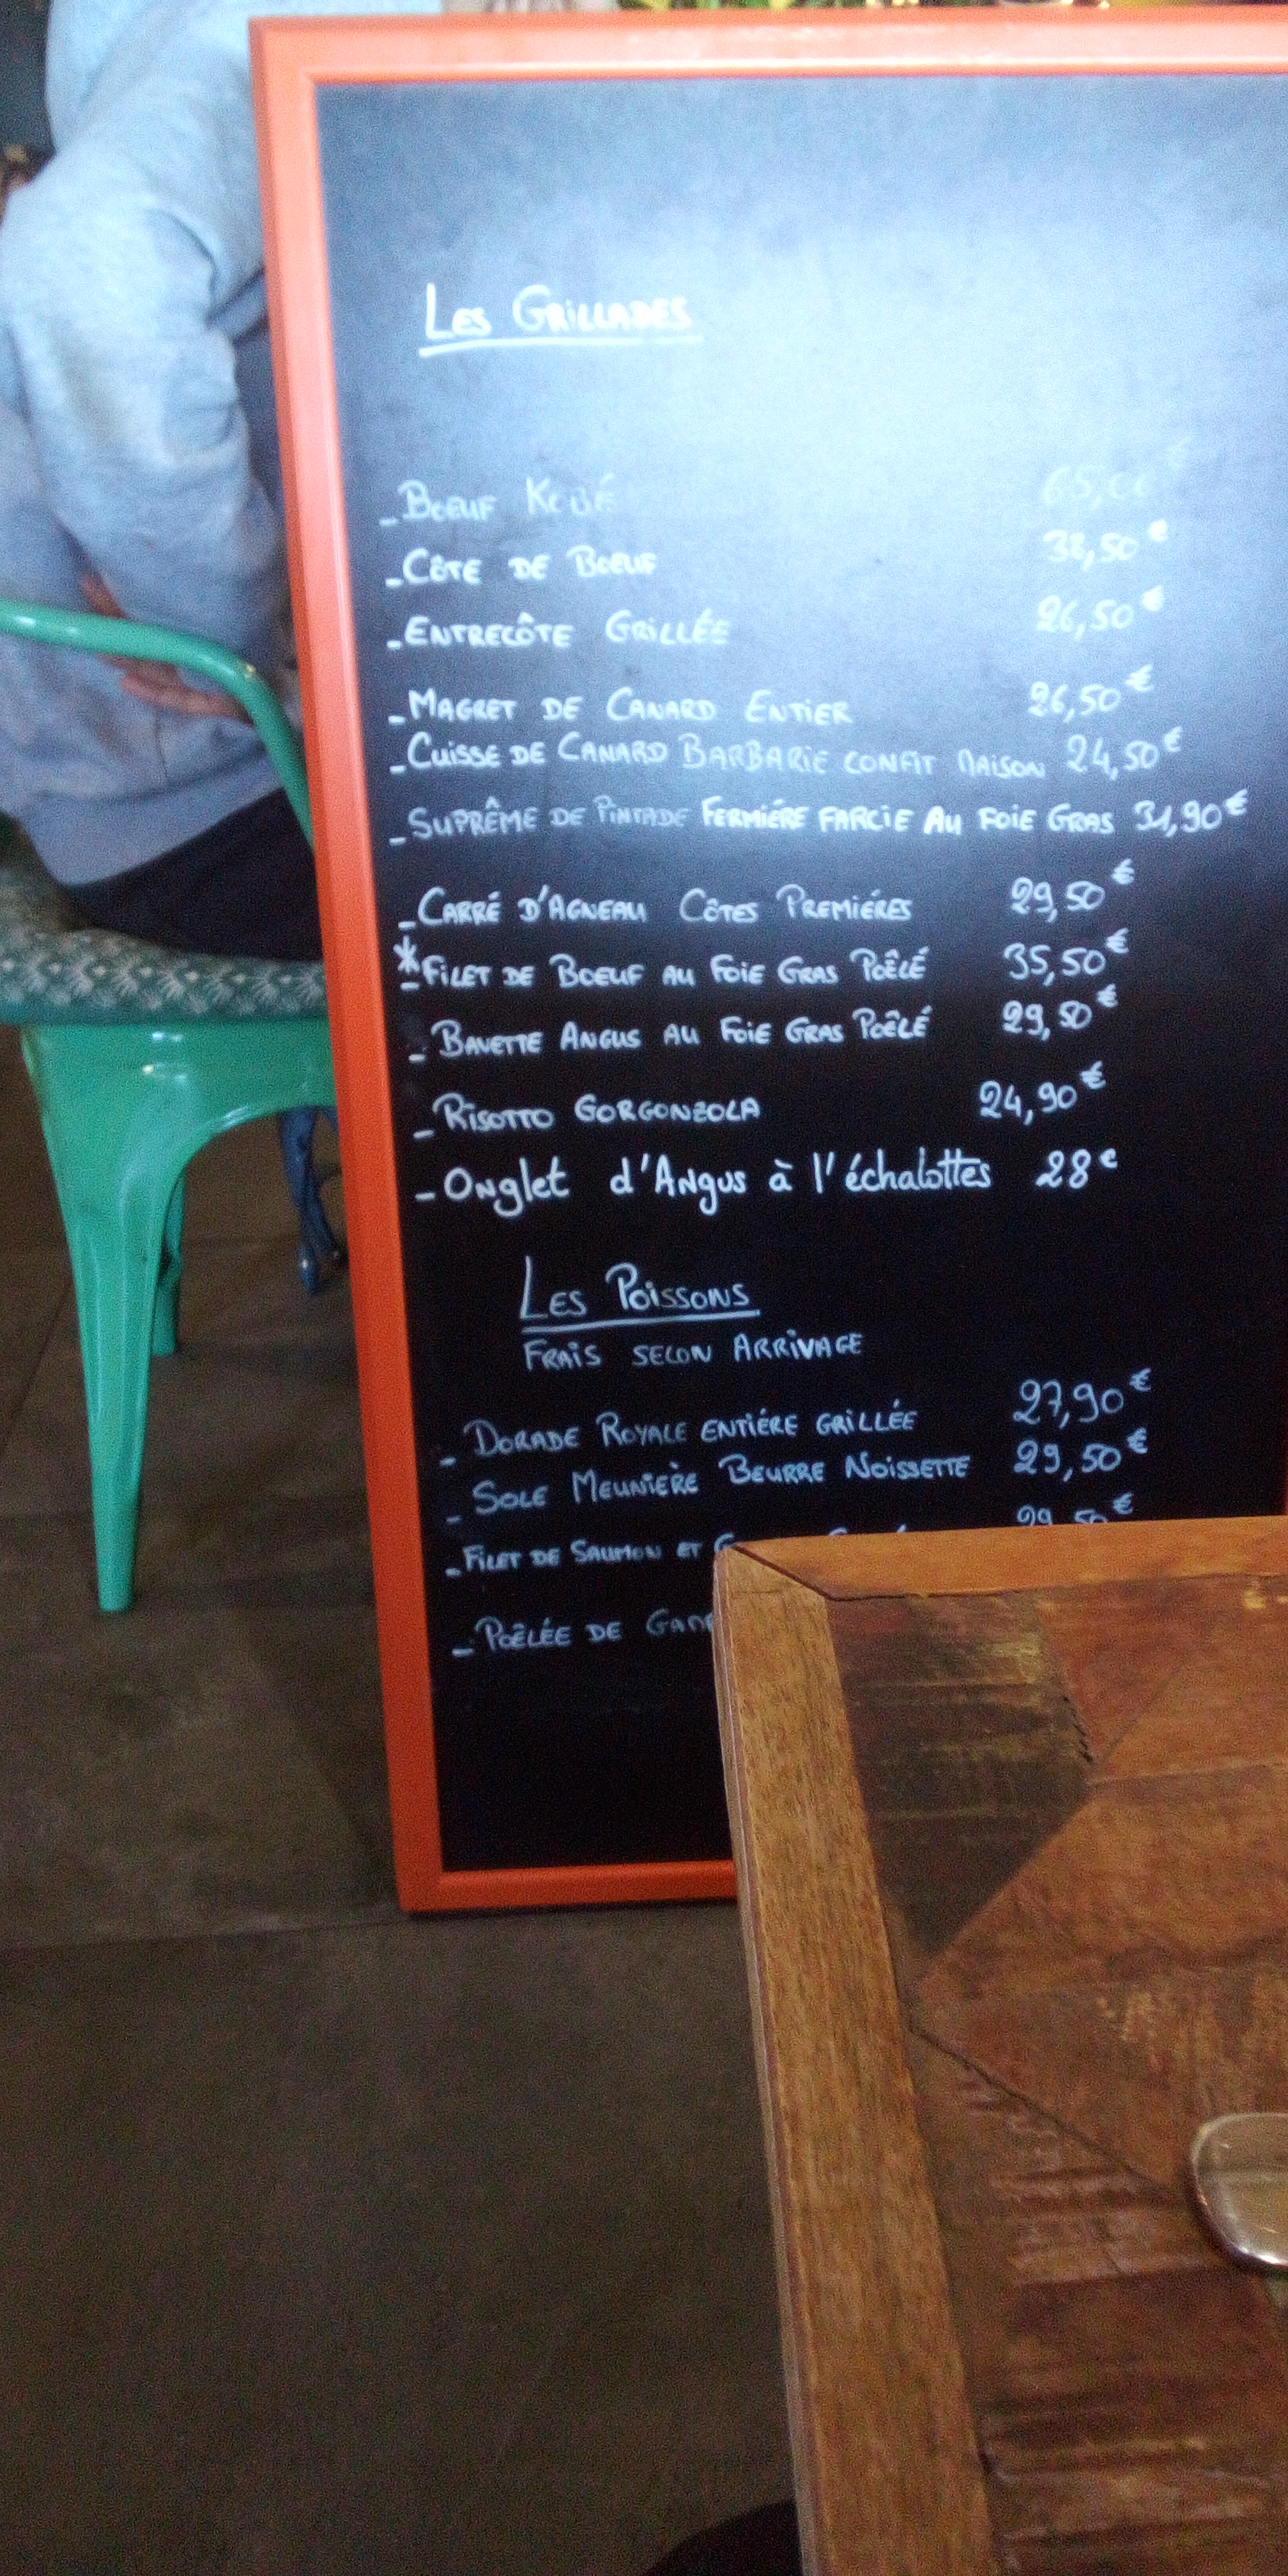 Les Grillades
- Boeuf Kobé 65,00€
- Côte de Boeuf 38,50€
- Entrecôte Grillée 26,50€
- Magret de Canard Entier 26,50€
- Cuisse de Canard Barbarie confit Maison 24,50€
- Suprême de Pintade Fermiére farcie au Foie Gras 31,90€
- Carré d'Agneau Côtes Premiéres 29,50€
*- Filet de Boeuf au Foie Gras Poêlé 35,50€
- Bavette Angus au Foie Gras Poêlé 29,50€
- Risotto Gorgonzola 24,90€
- Onglet d'Angus à l'échalottes 28€
Les Poissons
Frais selon Arrivage
- Dorade Royale entiére grillée 27,90€
- Sole Meunière Beurre Noissette 29,50€
- Filet de Saumon et 29,50€
- Poêlée de